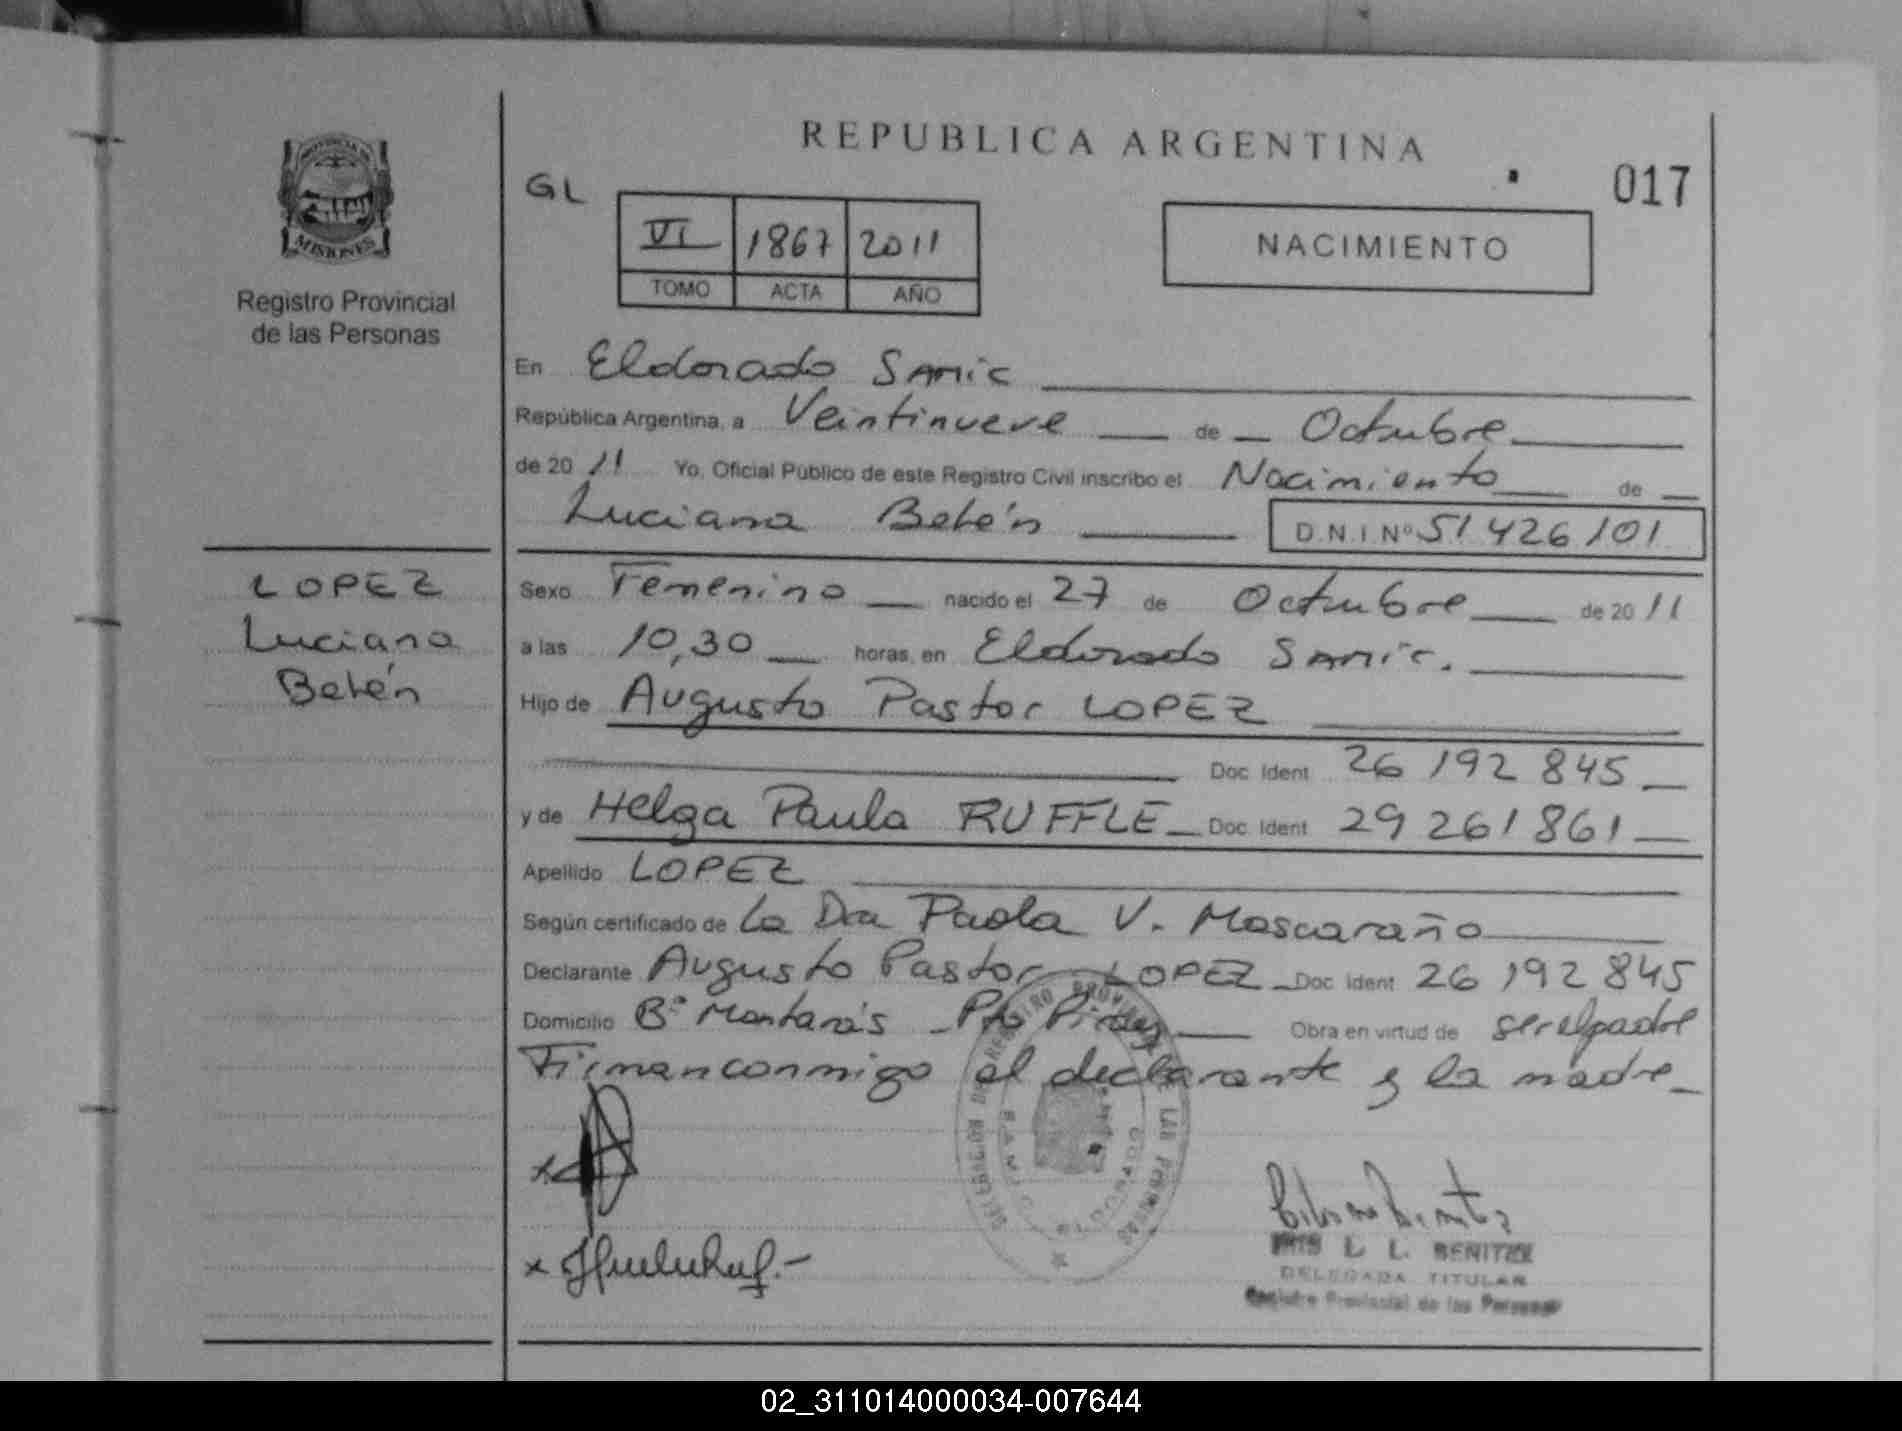 REPUBLICA ARGENTINA
017
GL
VI 1867 2011
TOMO ACTA AÑO
NACIMIENTO
MISIONES
Registro Provincial
de las Personas
En Eldorado SAMIC
República Argentina, a Veintinueve de Octubre
de 20 11 Yo, Oficial Público de este Registro Civil inscribo el Nacimiento de
Luciana Belén D.N.I.Nº 51 426 101
LOPEZ
Luciana
Belén
Sexo Femenino nacido el 27 de Octubre de 20 11
a las 10,30 horas, en Eldorado SAMIC.
Hijo de Augusto Pastor LOPEZ
Doc. Ident 26 192 845
y de Helga Paula RUFFLE Doc. Ident 29 261 861
Apellido LOPEZ
Según certificado de La Dra Paola V.
Declarante Augusto Pastor LOPEZ Doc. Ident 26 192 845
Domicilio Bº Montarás Pto Piray Obra en virtud de ser el padre
Firman conmigo el declarante y la madre
L. L. BENITEZ
DELEGADA TITULAR
Registro Provincial de las Personas
02_311014000034-007644